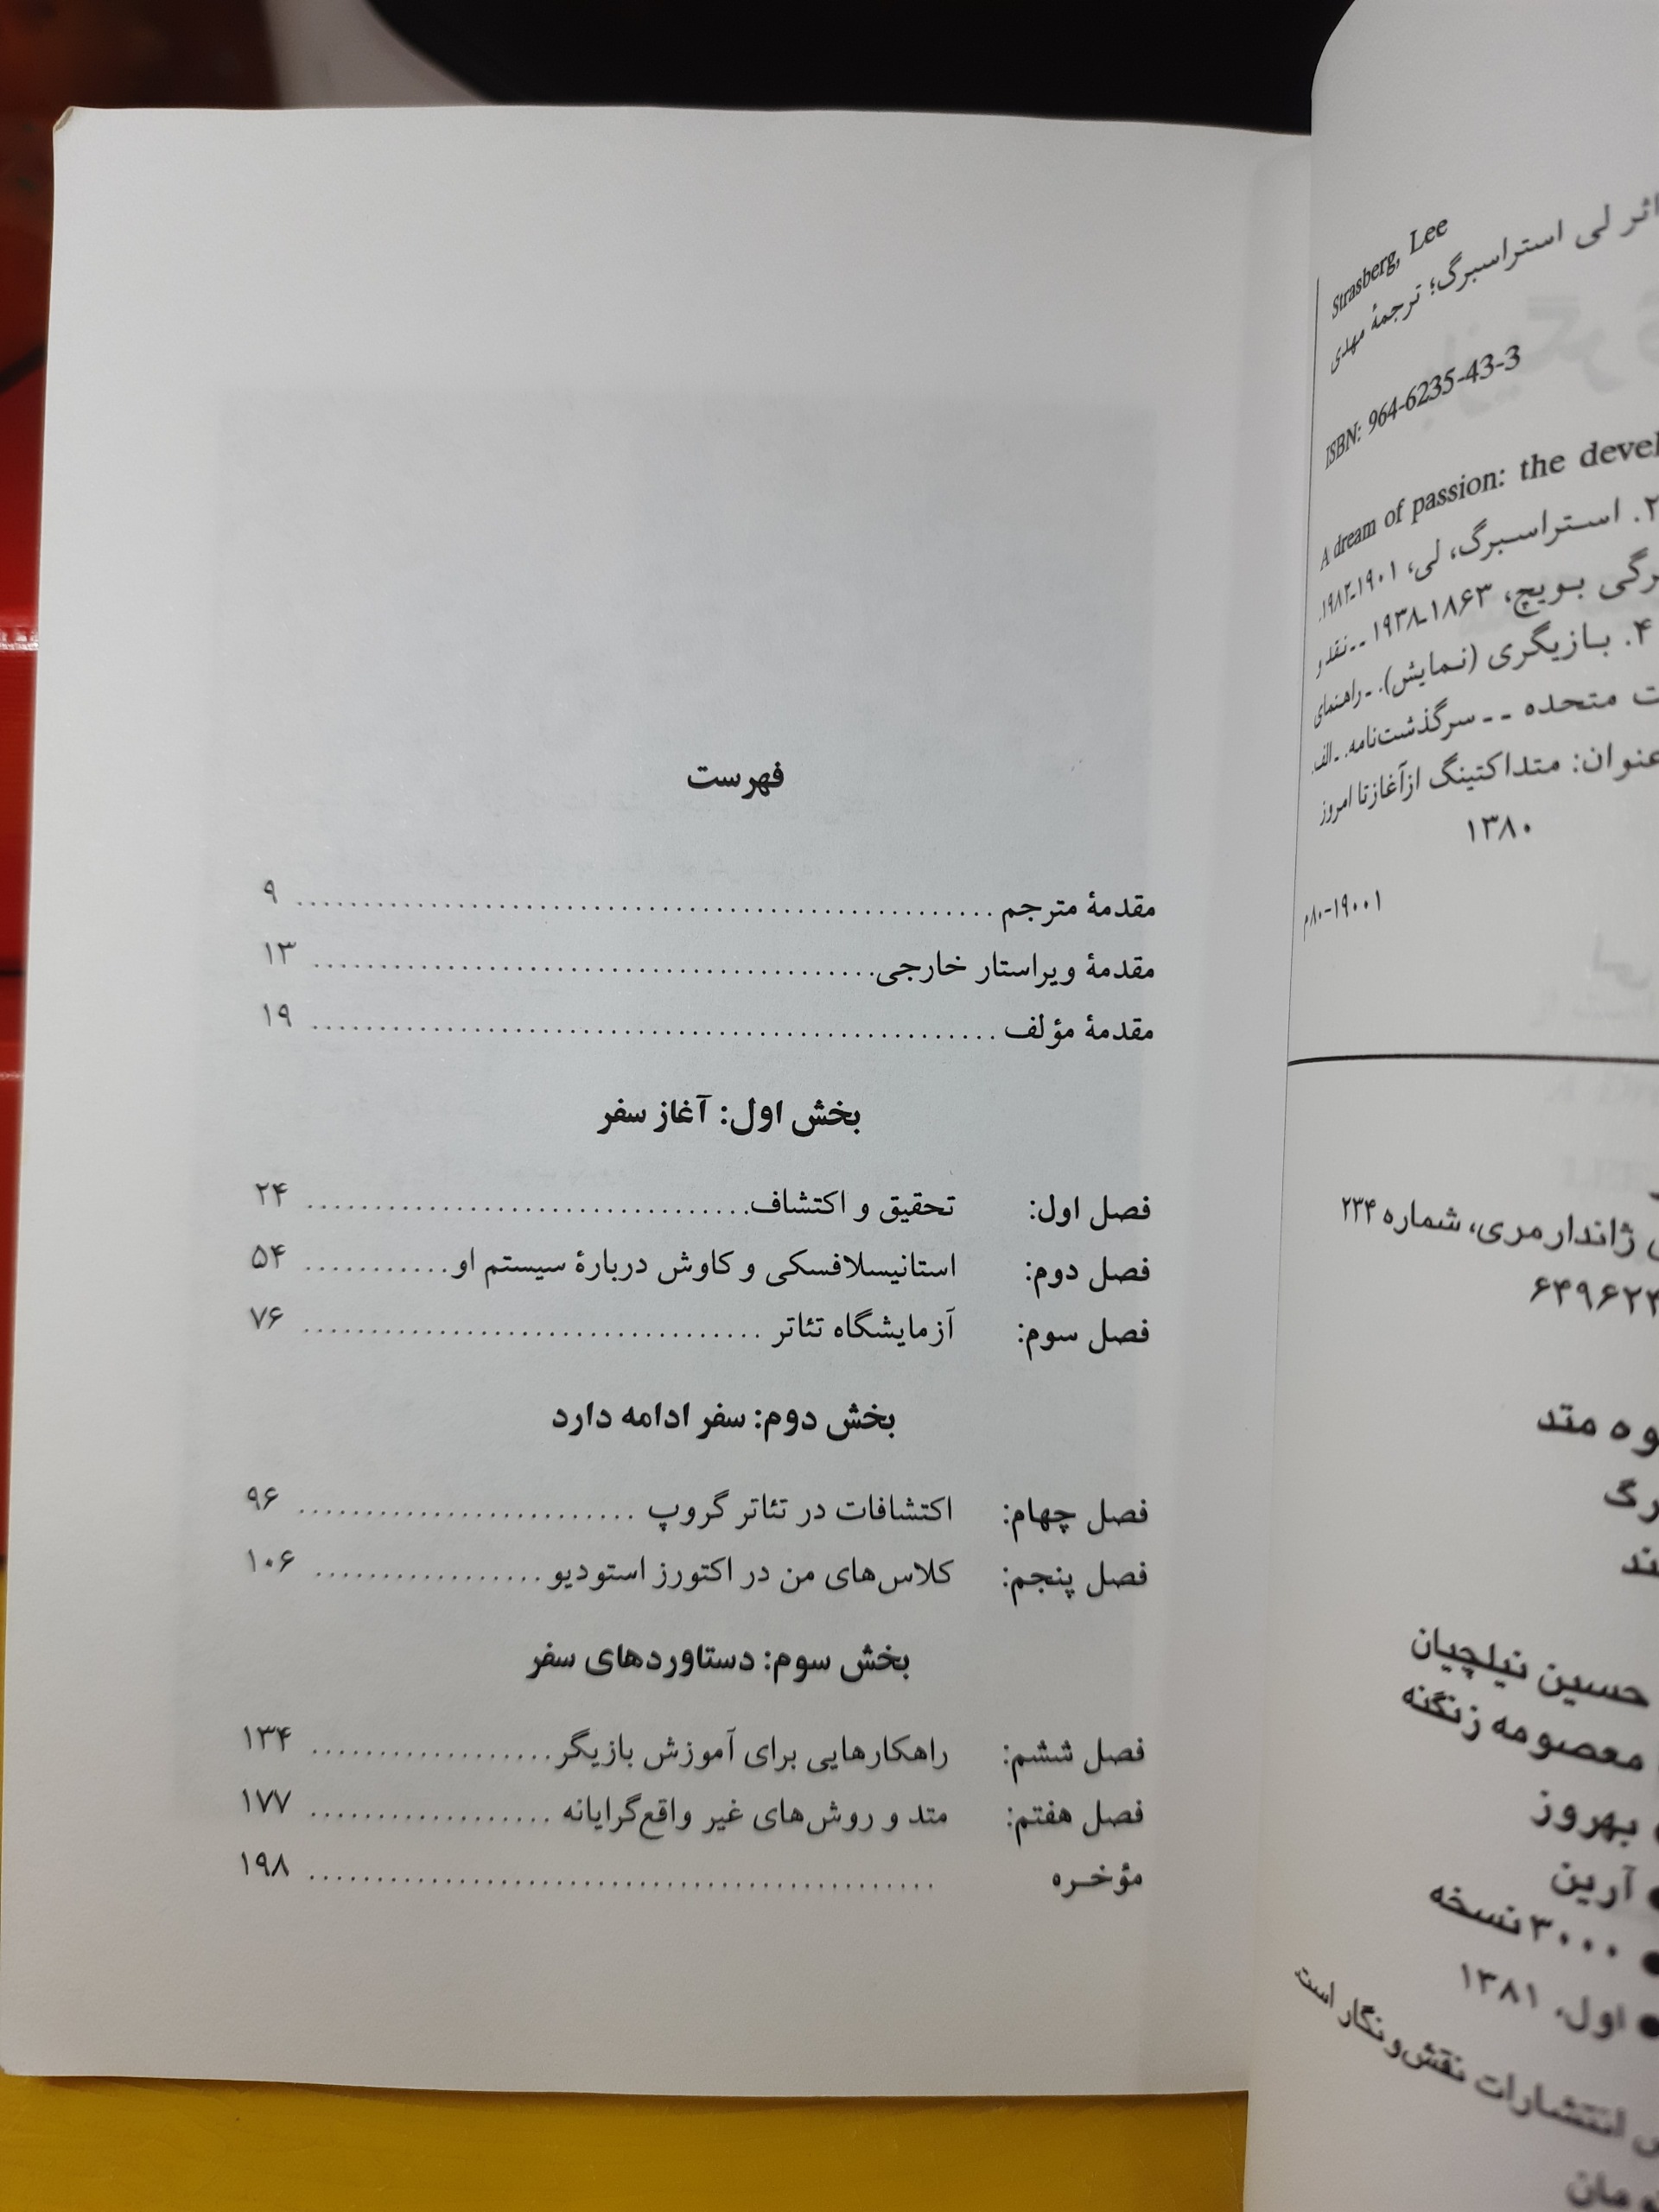 فهرست
مقدمهٔ مترجم ........ ۹
مقدمهٔ ویراستار خارجی ........ ۱۳
مقدمهٔ مؤلف ........ ۱۹
بخش اول: آغاز سفر
فصل اول: تحقیق و اکتشاف ........ ۲۴
فصل دوم: استانیسلافسکی و کاوش دربارهٔ سیستم او ........ ۵۴
فصل سوم: آزمایشگاه تئاتر ........ ۷۶
بخش دوم: سفر ادامه دارد
فصل چهام: اکتشافات در تئاتر گروپ ........ ۹۶
فصل پنجم: کلاس‌های من در اکتورز استودیو ........ ۱۰۶
بخش سوم: دستاوردهای سفر
فصل ششم: راهکارهایی برای آموزش بازیگر ........ ۱۳۴
فصل هفتم: متد و روش‌های غیر واقع‌گرایانه ........ ۱۷۷
مؤخـره ........ ۱۹۸
Strasberg, Lee
اثر لی استراسبرگ؛ ترجمهٔ مهدی
ISBN: 964-6235-43-3
A dream of passion: the
۲. استراسبرگ، لی، ۱۹۰۱ـ۱۹۸۲.
بویچ، ۱۸۶۳ـ۱۹۳۸ ــ نقد و
۴. بازیگری (نمایش). ـ راهنمای
متحده ــ سرگذشت‌نامه. ـ الف.
عنوان: متداکتینگ از آغاز تا امروز
۱۳۸۰
م۸۰-۱۹۰۰۱
ژاندارمری، شماره ۲۳۴
متد
حسین نیلچیان
معصومه زنگنه
بهروز
● آرین
● ۳۰۰۰ نسخه
● اول، ۱۳۸۱
انتشارات نقش‌ونگار است